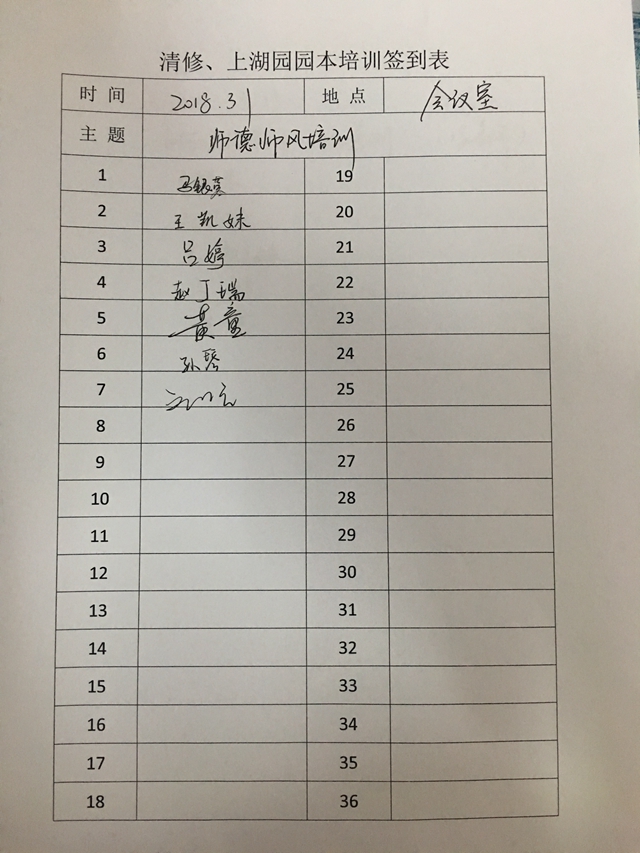 清修、上湖园园本培训签到表
时 间 2018.3 地 点 会议室
主 题 师德师风培训
1 19
2 王凯妹 20
3 吕婷 21
4 赵丁瑞 22
5 黄童 23
6 孙琴 24
7 25
8 26
9 27
10 28
11 29
12 30
13 31
14 32
15 33
16 34
17 35
18 36